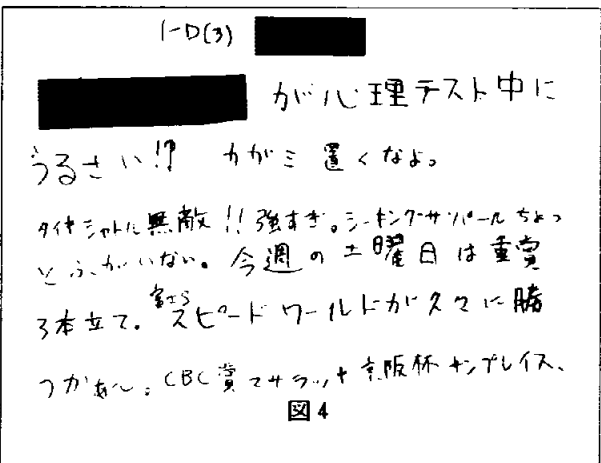 1-D(3)
が心理テスト中に
うるさい!! カガミ置くなよっ
タイキシャトル無敵!!強すぎ。シーキングザパールちょっ
とふがいない。今週の土曜日は重賞
3本立て。富士S スピードワールドが久々に勝
つかな CBC賞マサラッキ 京阪杯 サンプレイス、
図4